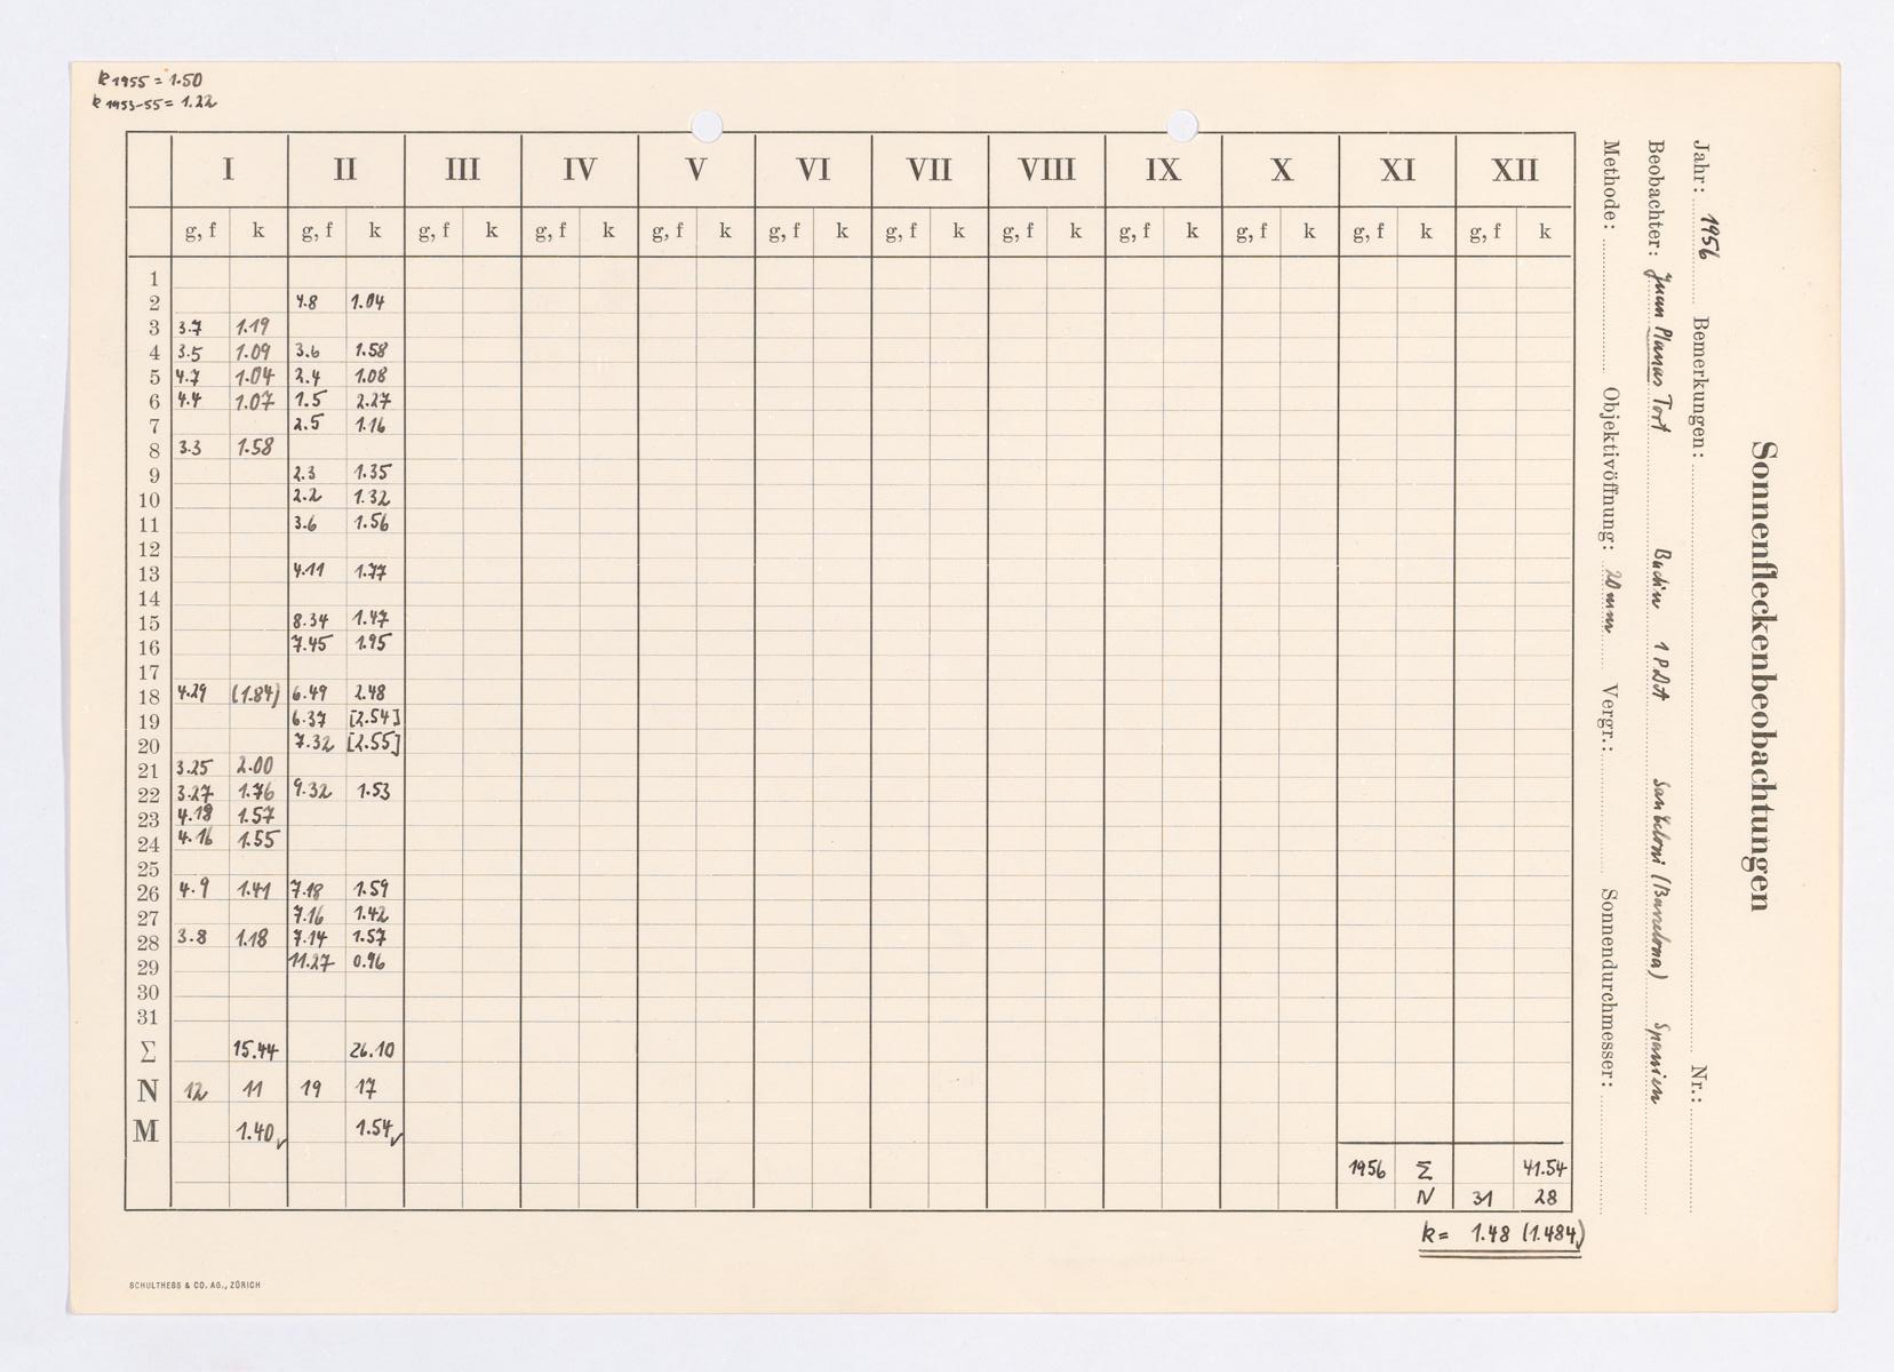 k 1955 = 1.50
k 1953-55 = 1.22
Sonnenfleckenbeobachtungen
Jahr: 1956 Bemerkungen: Nr.:
Beobachter: Juan Planas Tort 1 PDA (Barcelona) Spanien
Methode: Objektivöffnung: 20 mm Vergr.: Sonnendurchmesser:
I II III IV V VI VII VIII IX X XI XII
g, f k g, f k g, f k g, f k g, f k g, f k g, f k g, f k g, f k g, f k g, f k g, f k
1
2 4.8 1.04
3 3.7 1.19
4 3.5 1.09 3.6 1.58
5 4.7 1.04 2.4 1.08
6 4.4 1.07 1.5 2.27
7 2.5 1.16
8 3.3 1.58
9 2.3 1.35
10 2.2 1.32
11 3.6 1.56
12
13 4.11 1.77
14
15 8.34 1.47
16 7.45 1.95
17
18 4.29 (1.84) 6.49 2.48
19 6.37 [2.54]
20 7.32 [2.55]
21 3.25 2.00
22 3.27 1.76 9.32 1.53
23 4.18 1.57
24 4.16 1.55
25
26 4.9 1.41 7.18 1.59
27 7.16 1.42
28 3.8 1.18 7.14 1.57
29 11.27 0.96
30
31
Σ 15.44 26.10
N 12 11 19 17
M 1.40 1.54
1956 Σ 41.54
N 31 28
k = 1.48 (1.484)
SCHULTHESS & CO. AG., ZÜRICH